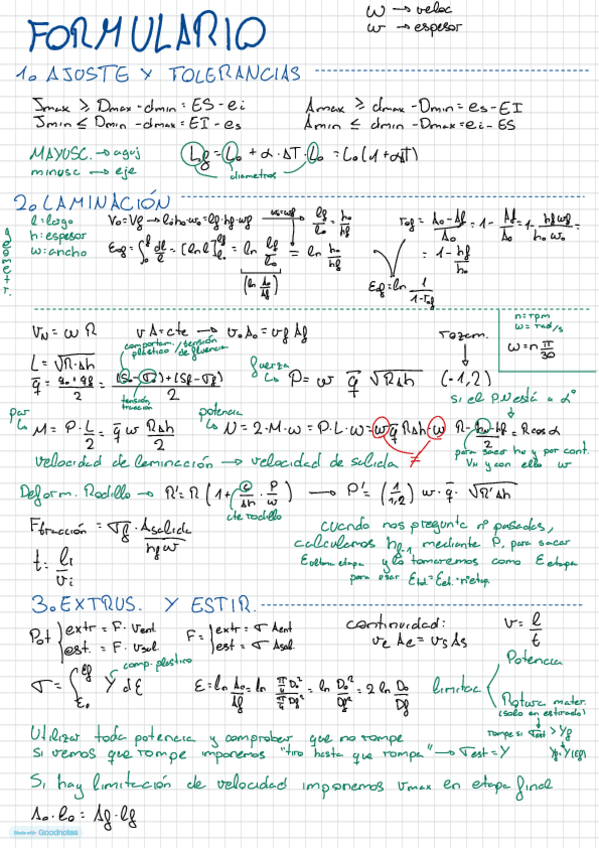 ω → veloc
w → espesor
FORMULARIO
1. AJUSTE Y TOLERANCIAS
Jmax ≥ Dmax - dmin = ES - ei
Jmin ≤ Dmin - dmax = EI - es
Amax ≥ dmax - Dmin = es - EI
Amin ≤ dmin - Dmax = ei - ES
MAYUSC. → aguj
minusc → eje
Lf = L0 + α · ΔT · L0 = L0 (1 + αΔT)
diametros
2. LAMINACIÓN
geometr.
l: largo
h: espesor
w: ancho
V0 = Vf → l0·h0·w0 = lf·hf·wf → w0=wf → lf/l0 = h0/hf
εof = ∫ dl/l = [ln l] = ln lf/l0 = ln h0/hf
(ln A0/Af)
rof = (A0 - Af)/A0 = 1 - Af/A0 = 1 - hf wf/h0 w0 =
= 1 - hf/h0
εof = ln 1/(1-rof)
n = rpm
ω = rad/s
ω = n π/30
VN = ω R
v A = cte → v0 A0 = vf Af
comportam. plástico / tensión de fluencia
L = √R·Δh
q̄ = (q0 + qf)/2 = ((S0 - σ0) + (Sf - σf))/2
tensión tracción
fuerza
↳ P = w q̄ √RΔh (·1,2)
rozam.
si el P.N está a α°
par
↳ M = P · L/2 = q̄ w RΔh/2
potencia
↳ N = 2·M·ω = P·L·ω = w q̄ RΔh·ω
≠
R - (hN - hf)/2 = R cos α
para sacar hN y por cont.
VN y con ello ω
velocidad de laminación → velocidad de salida
Deform. Rodillo → R' = R (1 + C/Δh · P/w) → P' = (1/1,2) w · q̄ · √R'Δh
cte rodillo
Ftracción = σf · Asalida
hf w
t = li/vi
cuando nos pregunte nº pasadas,
calculamos hf-1 mediante P. para sacar
εultima etapa y lo tomaremos como εetapa
para usar εtot = εet · netap
3. EXTRUS. Y ESTIR.
Pot { extr = F · vent
est. = F · vsal
F = { extr = σ Aent
est = σ Asal
continuidad:
ve Ae = vs As
v = l/t
comp. plastico
σ = ∫ Y dε
ε = ln A0/Af = ln (π/4 D0²)/(π/4 Df²) = ln D0²/Df² = 2 ln D0/Df
limitar
Potencia
Rotura mater.
(solo en estirado)
rompe si σest > Yf
Utilizar toda potencia y comprobar que no rompe
Si vemos que rompe imponemos "tiro hasta que rompa" → σest = Y
Si hay limitación de velocidad imponemos vmax en etapa final
A0 · l0 = Af · lf
Made with Goodnotes